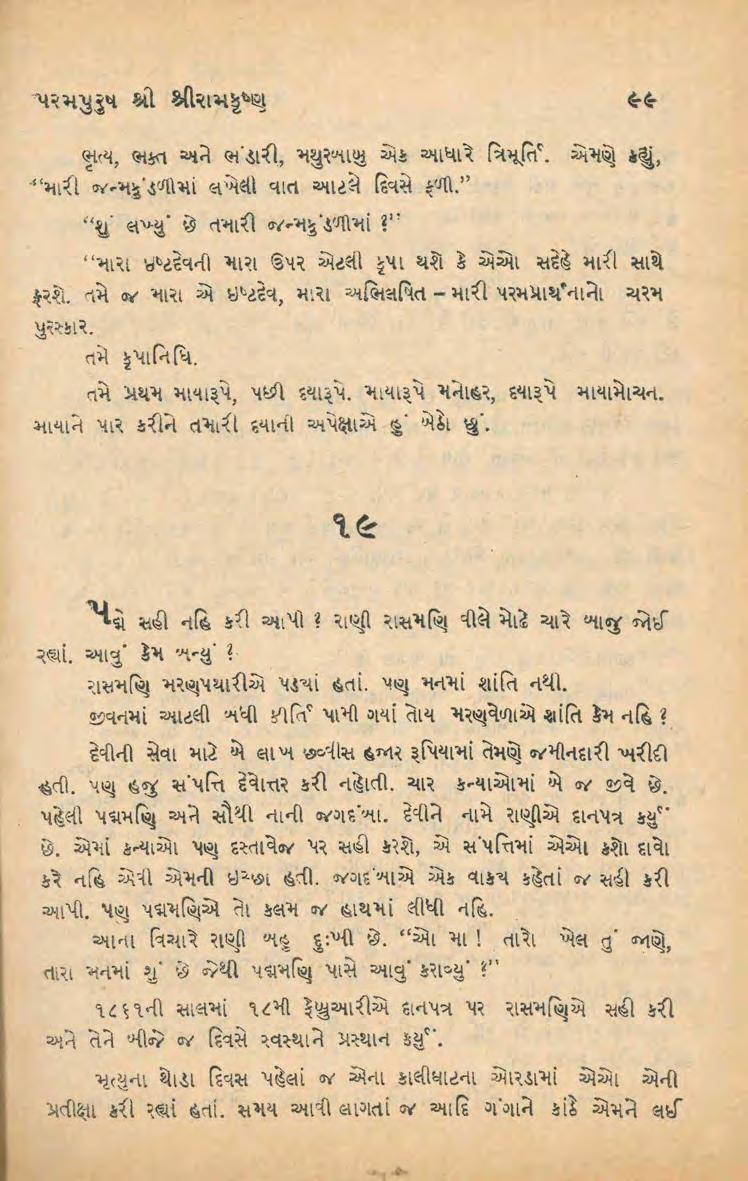 પરમપુરુષ શ્રી શ્રીરામકૃષ્ણ ૯૯
ભૃત્ય, ભક્ત અને ભંડારી, મથુરબાબુ એક આધારે ત્રિમૂર્તિ. એમણે કહ્યું,
“મારી જન્મકુંડળીમાં લખેલી વાત આટલે દિવસે ફળી.”
“શું લખ્યું છે તમારી જન્મકુંડળીમાં ?”
“મારા ઇષ્ટદેવની મારા ઉપર એટલી કૃપા થશે કે એઓ સદેહે મારી સાથે
ફરશે. તમે જ મારા એ ઇષ્ટદેવ, મારા અભિલષિત – મારી પરમપ્રાર્થનાનો ચરમ
પુરસ્કાર.
તમે કૃપાનિધિ.
તમે પ્રથમ માયારૂપે, પછી દયારૂપે. માયારૂપે મનોહર, દયારૂપે માયામોચન.
માયાને પાર કરીને તમારી દયાની અપેક્ષાએ હું બેઠો છું.
૧૯
પદ્મે સહી નહિ કરી આપી ? રાણી રાસમણિ વીલે મોઢે ચારે બાજુ જોઈ
રહ્યાં. આવું કેમ બન્યું ?
રાસમણિ મરણપથારીએ પડયાં હતાં. પણ મનમાં શાંતિ નથી.
જીવનમાં આટલી બધી કીર્તિ પામી ગયાં તોય મરણવેળાએ શાંતિ કેમ નહિ ?
દેવીની સેવા માટે બે લાખ છવ્વીસ હજાર રૂપિયામાં તેમણે જમીનદારી ખરીદી
હતી. પણ હજુ સંપત્તિ દેવોત્તર કરી નહોતી. ચાર કન્યાઓમાં બે જ જીવે છે.
પહેલી પદ્મમણિ અને સૌથી નાની જગદંબા. દેવીને નામે રાણીએ દાનપત્ર કર્યું
છે. એમાં કન્યાઓ પણ દસ્તાવેજ પર સહી કરશે, એ સંપત્તિમાં એઓ કશો દાવો
કરે નહિ એવી એમની ઇચ્છા હતી. જગદંબાએ એક વાક્ય કહેતાં જ સહી કરી
આપી. પણ પદ્મમણિએ તો કલમ જ હાથમાં લીધી નહિ.
આના વિચારે રાણી બહુ દુઃખી છે. “ઓ મા ! તારો ખેલ તું જાણે,
તારા મનમાં શું છે જેથી પદ્મમણિ પાસે આવું કરાવ્યું ?”
૧૮૬૧ની સાલમાં ૧૮મી ફેબ્રુઆરીએ દાનપત્ર પર રાસમણિએ સહી કરી
અને તેને બીજે જ દિવસે સ્વસ્થાને પ્રસ્થાન કર્યું.
મૃત્યુના થોડા દિવસ પહેલાં જ એના કાલીઘાટના ઓરડામાં એઓ એની
પ્રતીક્ષા કરી રહ્યાં હતાં. સમય આવી લાગતાં જ આદિ ગંગાને કાંઠે એમને લઈ